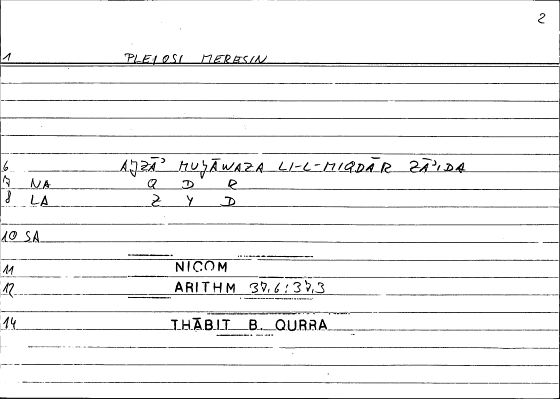 2
1 PLEIOSI MERESIN
6 AǧZĀʾ MUǧĀWAZA LI-L-MIQDĀR ZĀʾIDA
7 NA Q D R
8 LA Z Y D
10 SA
11 NICOM
12 ARITHM 37,6 : 37,3
14 THĀBIT B. QURRA